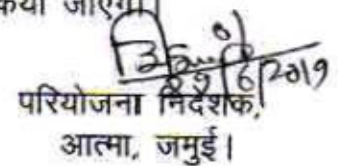 किया जाएगा।
29/6/2019
परियोजना निदेशक,
आत्मा, जमुई।